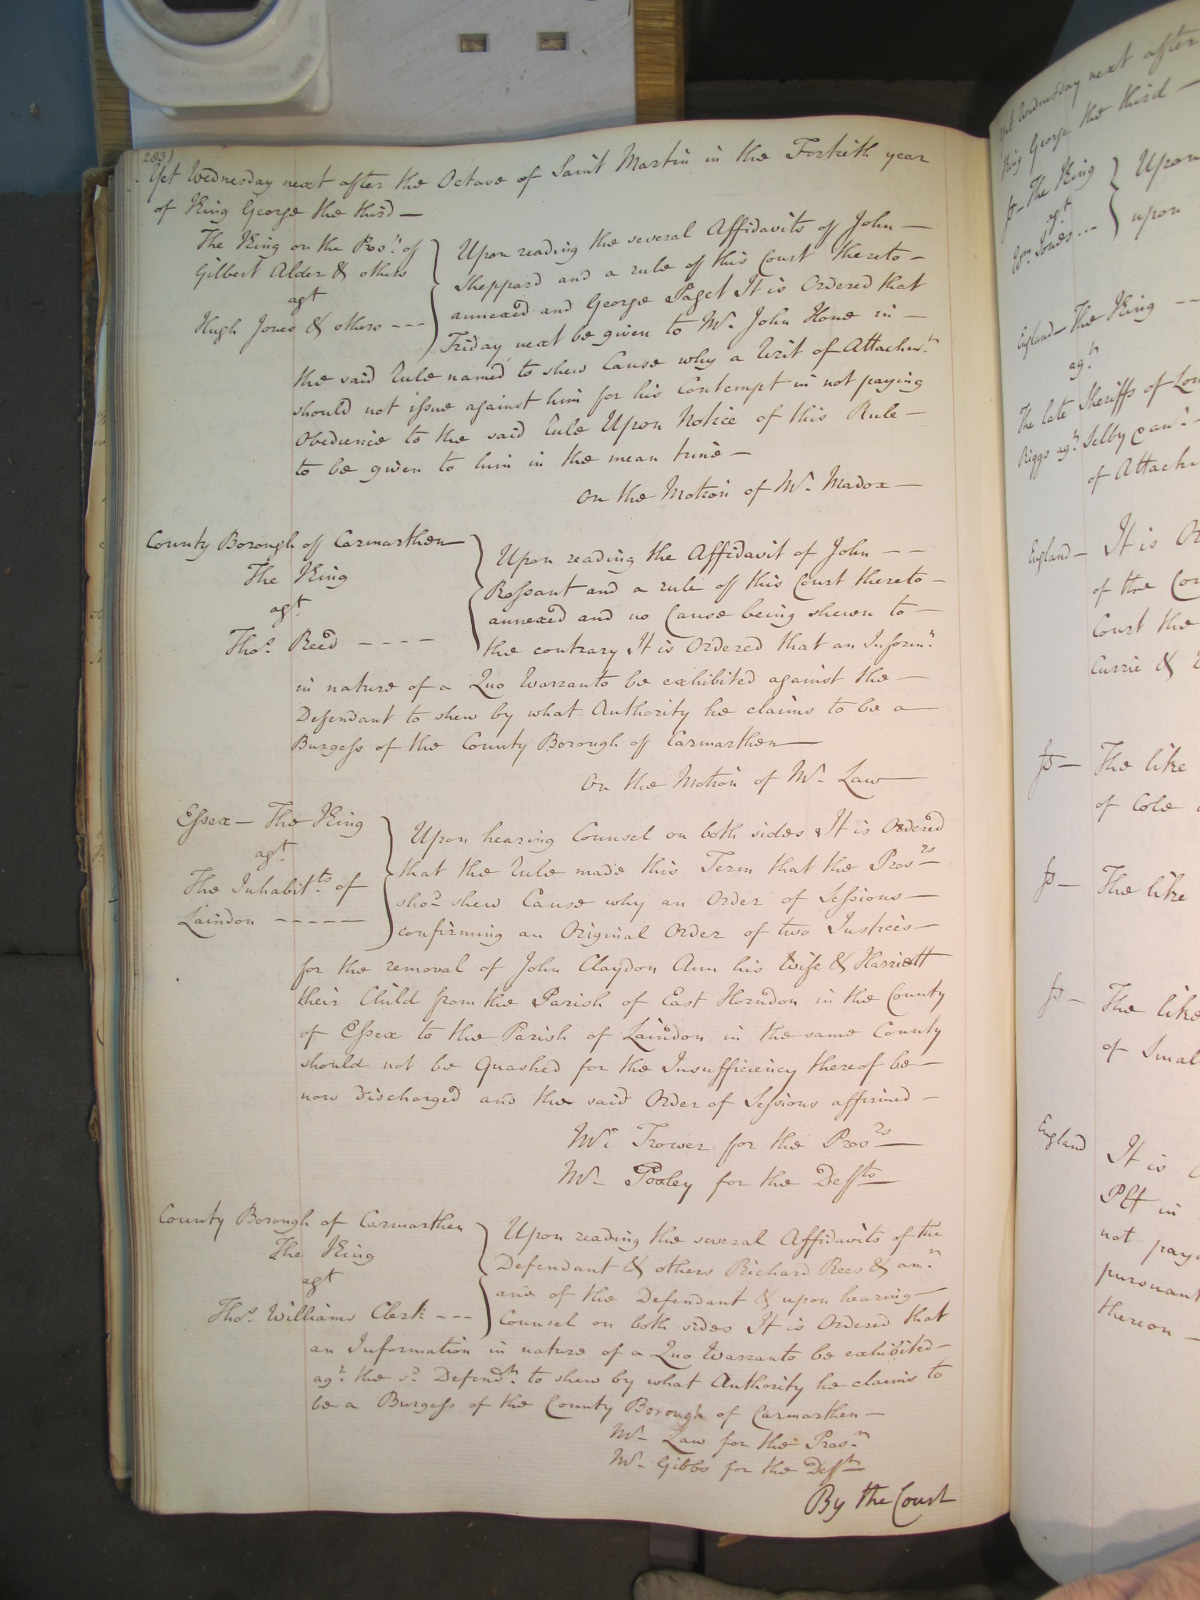 283)
Yet Wednesday next after the Octave of Saint Martin in the Fortieth year
of King George the third —
The King on the Pros.n of
Gilbert Alder & others
agt
Hugh Jones & others ---
Upon reading the several Affidavits of John —
Sheppard and a rule of this Court thereto —
annexed and George Paget It is Ordered that
Friday next be given to Mr. John Hone in —
the said Rule named to shew Cause why a Writ of Attachmt.
should not issue against him for his Contempt in not paying
Obedience to the said Rule Upon Notice of this Rule —
to be given to him in the mean time —
On the Motion of Mr. Madox —
County Borough of Carmarthen
The King
agt
Thos. Reed ----
Upon reading the Affidavit of John --
Rossant and a rule of this Court thereto —
annexed and no Cause being shewn to —
the contrary It is Ordered that an Inform.n
in nature of a Quo Warranto be exhibited against the —
Defendant to shew by what Authority he claims to be a —
Burgess of the County Borough of Carmarthen —
On the Motion of Mr. Law —
Essex — The King
agt.
The Inhabit.ts of
Laindon -----
Upon hearing Counsel on both sides It is Ordered
that the Rule made this Term that the Pros.rs
sho.d shew Cause why an Order of Sessions —
confirming an Original Order of two Justices —
for the removal of John Claydon Ann his Wife & Harriett
their Child from the Parish of East Horndon in the County
of Essex to the Parish of Laindon in the same County
should not be Quashed for the Insufficiency thereof be —
now discharged and the said Order of Sessions affirmed —
Mr. Trower for the Pros.rs —
Mr. Pooley for the Deffts —
County Borough of Carmarthen
The King
agt
Thos. Williams Clerk ---
Upon reading the several Affidavits of the
Defendant & others Richard Rees & an.r
and of the Defendant & upon hearing —
Counsel on both sides It is Ordered that
an Information in nature of a Quo Warranto be exhibited —
agt. the sd. Defendt. to shew by what Authority he claims to
be a Burgess of the County Borough of Carmarthen —
Mr. Law for the Pros.n
Mr. Gibbs for the Defft
By the Court
Yet Wednesday next after
King George the third —
The King
agt
Wm. Jones ---
Upon
upon
England — The King --
agt.
The late Sheriffs of
Riggs agt. Selby
of
England — It is
of the
Court the
Currie &
The like
of Cole
The like
The like
of
England
It is
Plt in
not
pursuant
thereon —